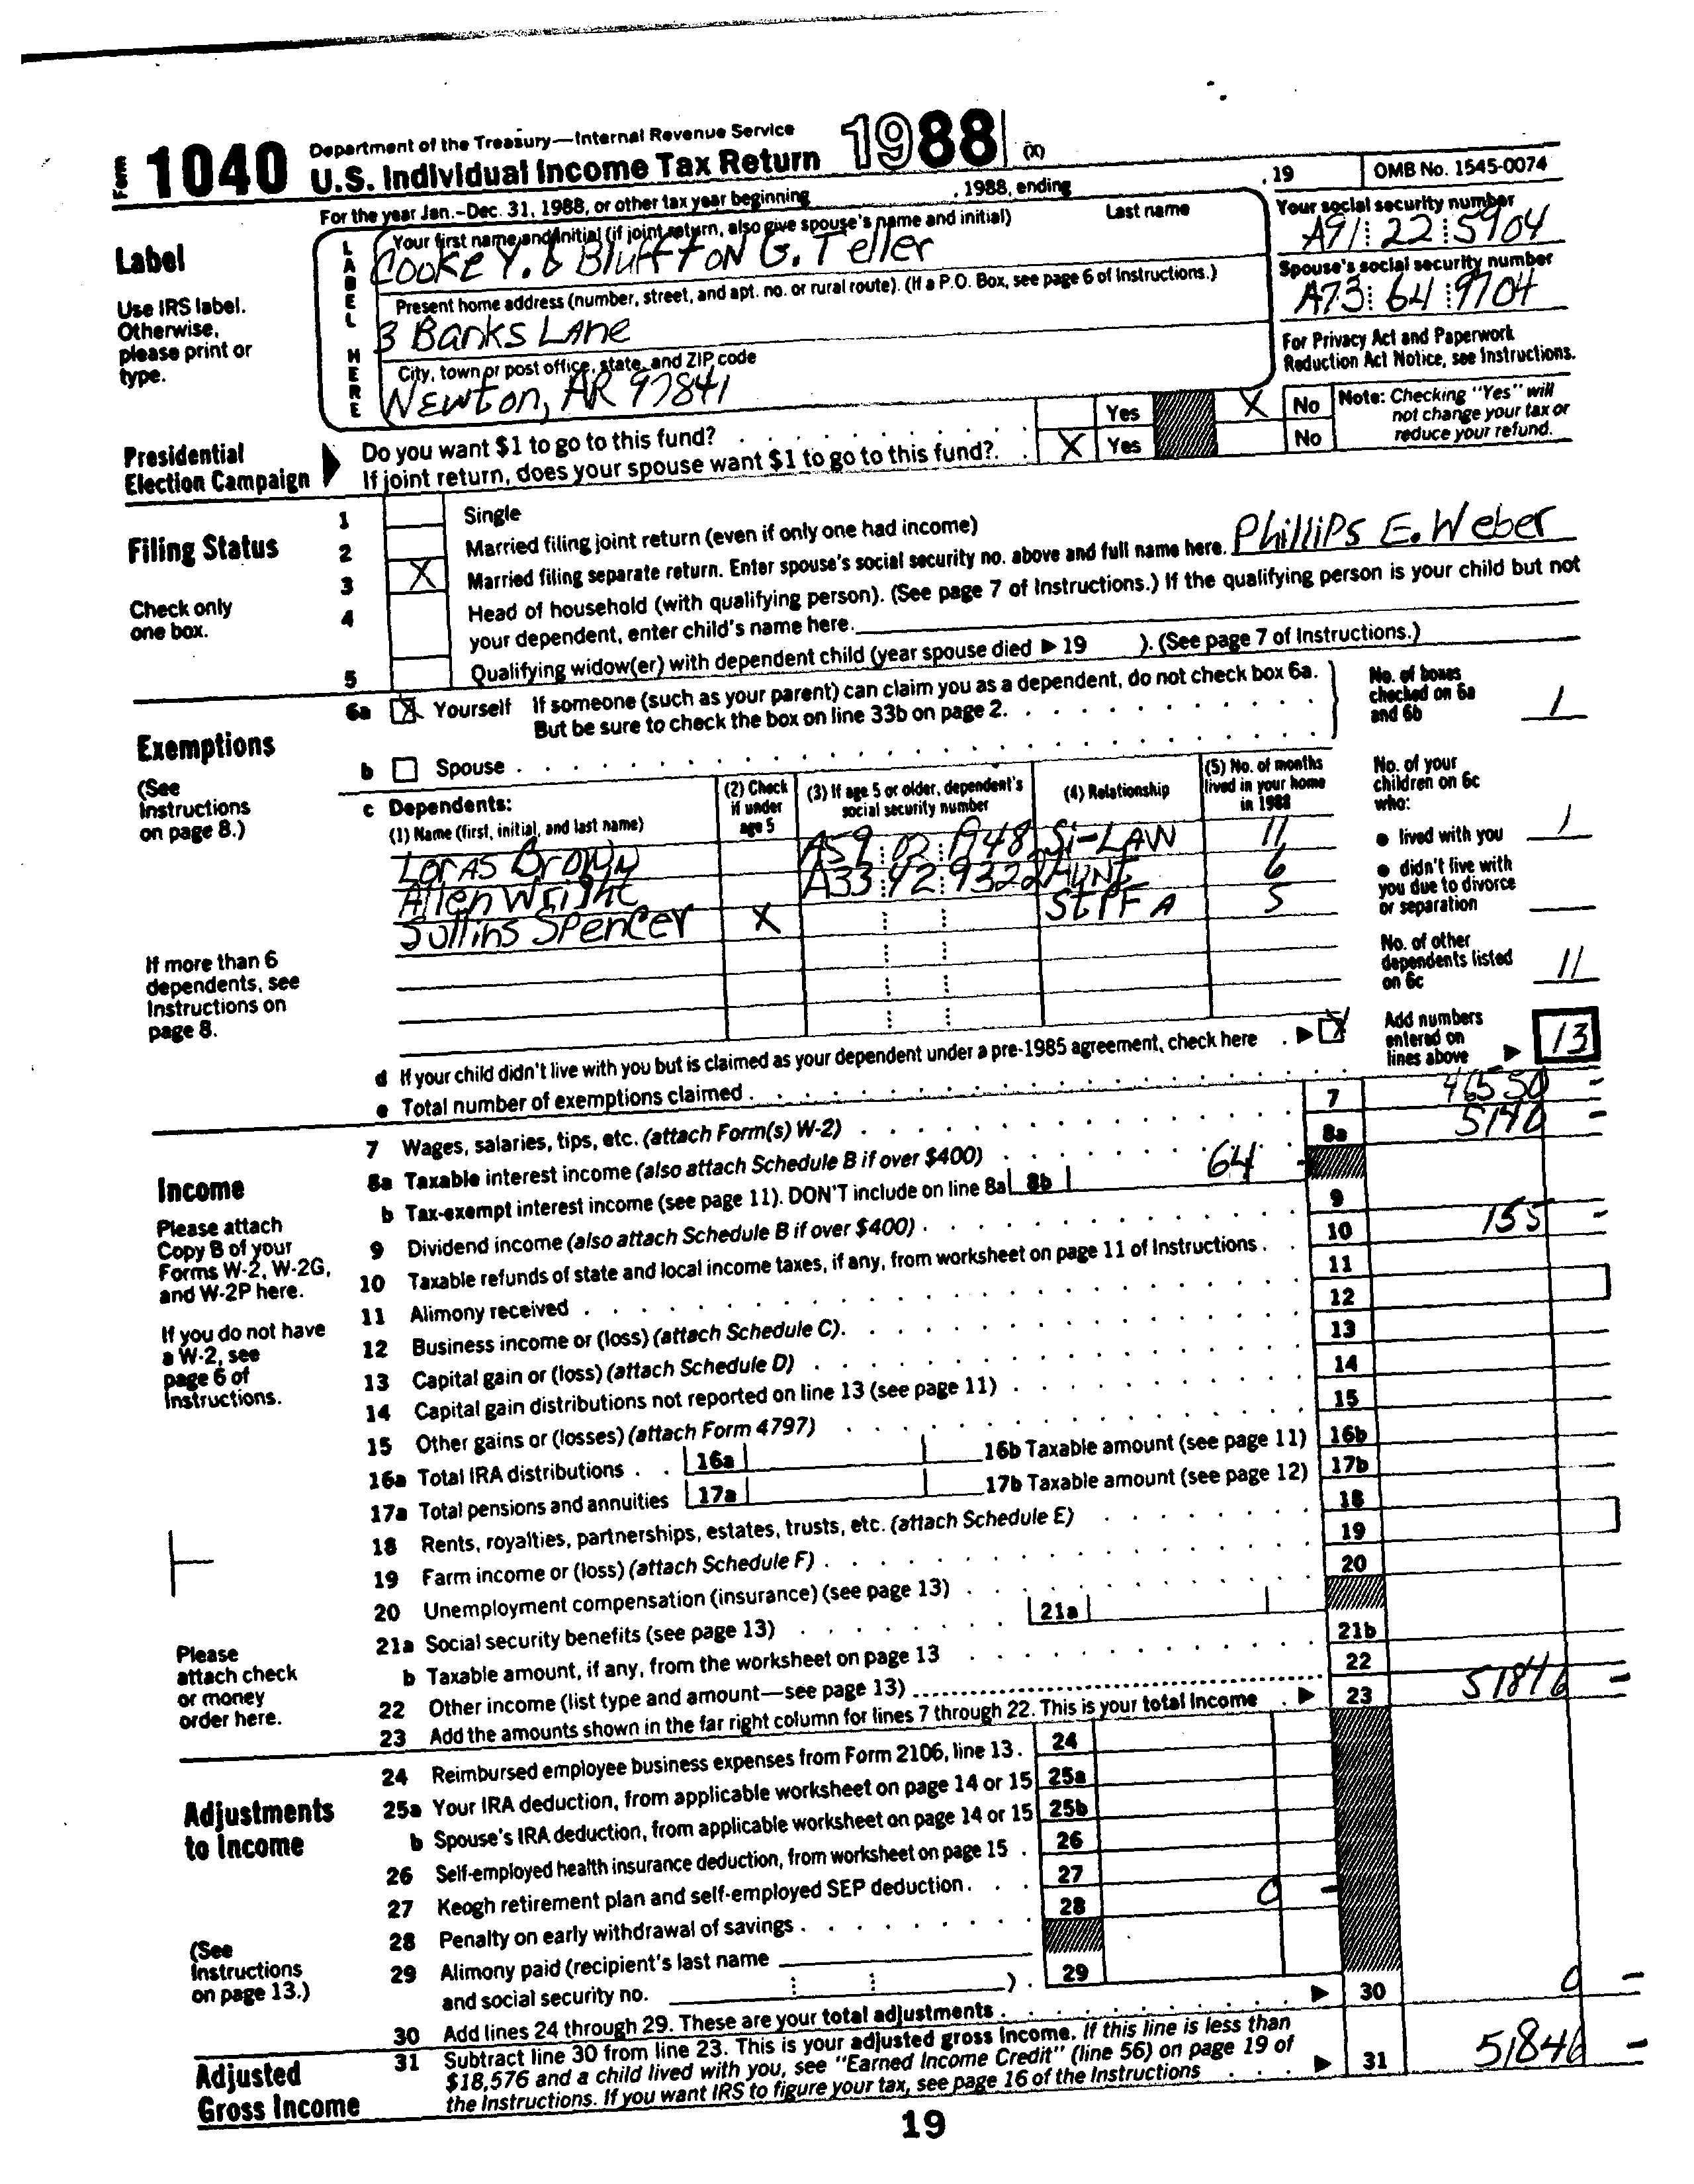 Form 1040 Department of the Treasury—Internal Revenue Service
U.S. Individual Income Tax Return 1988 (X)
For the year Jan.–Dec. 31, 1988, or other tax year beginning , 1988, ending , 19 OMB No. 1545-0074
Label
Use IRS label.
Otherwise,
please print or
type.
LABEL HERE
Your first name and initial (if joint return, also give spouse's name and initial) Last name
Cooke Y. & Bluffton G. Teller
Your social security number
A91 22 5904
Present home address (number, street, and apt. no. or rural route). (If a P.O. Box, see page 6 of Instructions.)
3 Banks Lane
Spouse's social security number
A73 64 9704
City, town or post office, state, and ZIP code
Newton, AR 97841
For Privacy Act and Paperwork
Reduction Act Notice, see Instructions.
Presidential
Election Campaign
Do you want $1 to go to this fund? Yes X No
If joint return, does your spouse want $1 to go to this fund? X Yes No
Note: Checking "Yes" will
not change your tax or
reduce your refund.
Filing Status
Check only
one box.
1 Single
2 Married filing joint return (even if only one had income)
3 X Married filing separate return. Enter spouse's social security no. above and full name here. Phillips E. Weber
4 Head of household (with qualifying person). (See page 7 of Instructions.) If the qualifying person is your child but not
your dependent, enter child's name here.
5 Qualifying widow(er) with dependent child (year spouse died ▶ 19 ). (See page 7 of Instructions.)
Exemptions
(See
Instructions
on page 8.)
6a X Yourself If someone (such as your parent) can claim you as a dependent, do not check box 6a.
But be sure to check the box on line 33b on page 2.
No. of boxes
checked on 6a
and 6b 1
b Spouse
c Dependents:
(1) Name (first, initial, and last name)
(2) Check
if under
age 5
(3) If age 5 or older, dependent's
social security number
(4) Relationship
(5) No. of months
lived in your home
in 1988
Loras Brown A59 02 Si-LAW 11
Allen Wright A33 42 9322 Aunt 6
Sullins Spencer X StPFA 5
No. of your
children on 6c
who:
● lived with you 1
● didn't live with
you due to divorce
or separation
No. of other
dependents listed
on 6c 11
If more than 6
dependents, see
Instructions on
page 8.
d If your child didn't live with you but is claimed as your dependent under a pre-1985 agreement, check here ▶ X
e Total number of exemptions claimed
Add numbers
entered on
lines above ▶ 13
Income
Please attach
Copy B of your
Forms W-2, W-2G,
and W-2P here.
If you do not have
a W-2, see
page 6 of
Instructions.
Please
attach check
or money
order here.
7 Wages, salaries, tips, etc. (attach Form(s) W-2) 7 46550 –
8a Taxable interest income (also attach Schedule B if over $400) 8a 5140 –
b Tax-exempt interest income (see page 11). DON'T include on line 8a 8b 64 –
9 Dividend income (also attach Schedule B if over $400) 9
10 Taxable refunds of state and local income taxes, if any, from worksheet on page 11 of Instructions 10 155 –
11 Alimony received 11
12 Business income or (loss) (attach Schedule C) 12
13 Capital gain or (loss) (attach Schedule D) 13
14 Capital gain distributions not reported on line 13 (see page 11) 14
15 Other gains or (losses) (attach Form 4797) 15
16a Total IRA distributions 16a 16b Taxable amount (see page 11) 16b
17a Total pensions and annuities 17a 17b Taxable amount (see page 12) 17b
18 Rents, royalties, partnerships, estates, trusts, etc. (attach Schedule E) 18
19 Farm income or (loss) (attach Schedule F) 19
20 Unemployment compensation (insurance) (see page 13) 20
21a Social security benefits (see page 13) 21a
b Taxable amount, if any, from the worksheet on page 13 21b
22 Other income (list type and amount—see page 13) 22
23 Add the amounts shown in the far right column for lines 7 through 22. This is your total income ▶ 23 51846 –
Adjustments
to Income
(See
Instructions
on page 13.)
24 Reimbursed employee business expenses from Form 2106, line 13 24
25a Your IRA deduction, from applicable worksheet on page 14 or 15 25a
b Spouse's IRA deduction, from applicable worksheet on page 14 or 15 25b
26 Self-employed health insurance deduction, from worksheet on page 15 26
27 Keogh retirement plan and self-employed SEP deduction 27
28 Penalty on early withdrawal of savings 28 0 –
29 Alimony paid (recipient's last name
and social security no. ) 29
30 Add lines 24 through 29. These are your total adjustments ▶ 30 0 –
Adjusted
Gross Income
31 Subtract line 30 from line 23. This is your adjusted gross income. If this line is less than
$18,576 and a child lived with you, see "Earned Income Credit" (line 56) on page 19 of
the Instructions. If you want IRS to figure your tax, see page 16 of the Instructions ▶ 31 51846 –
19